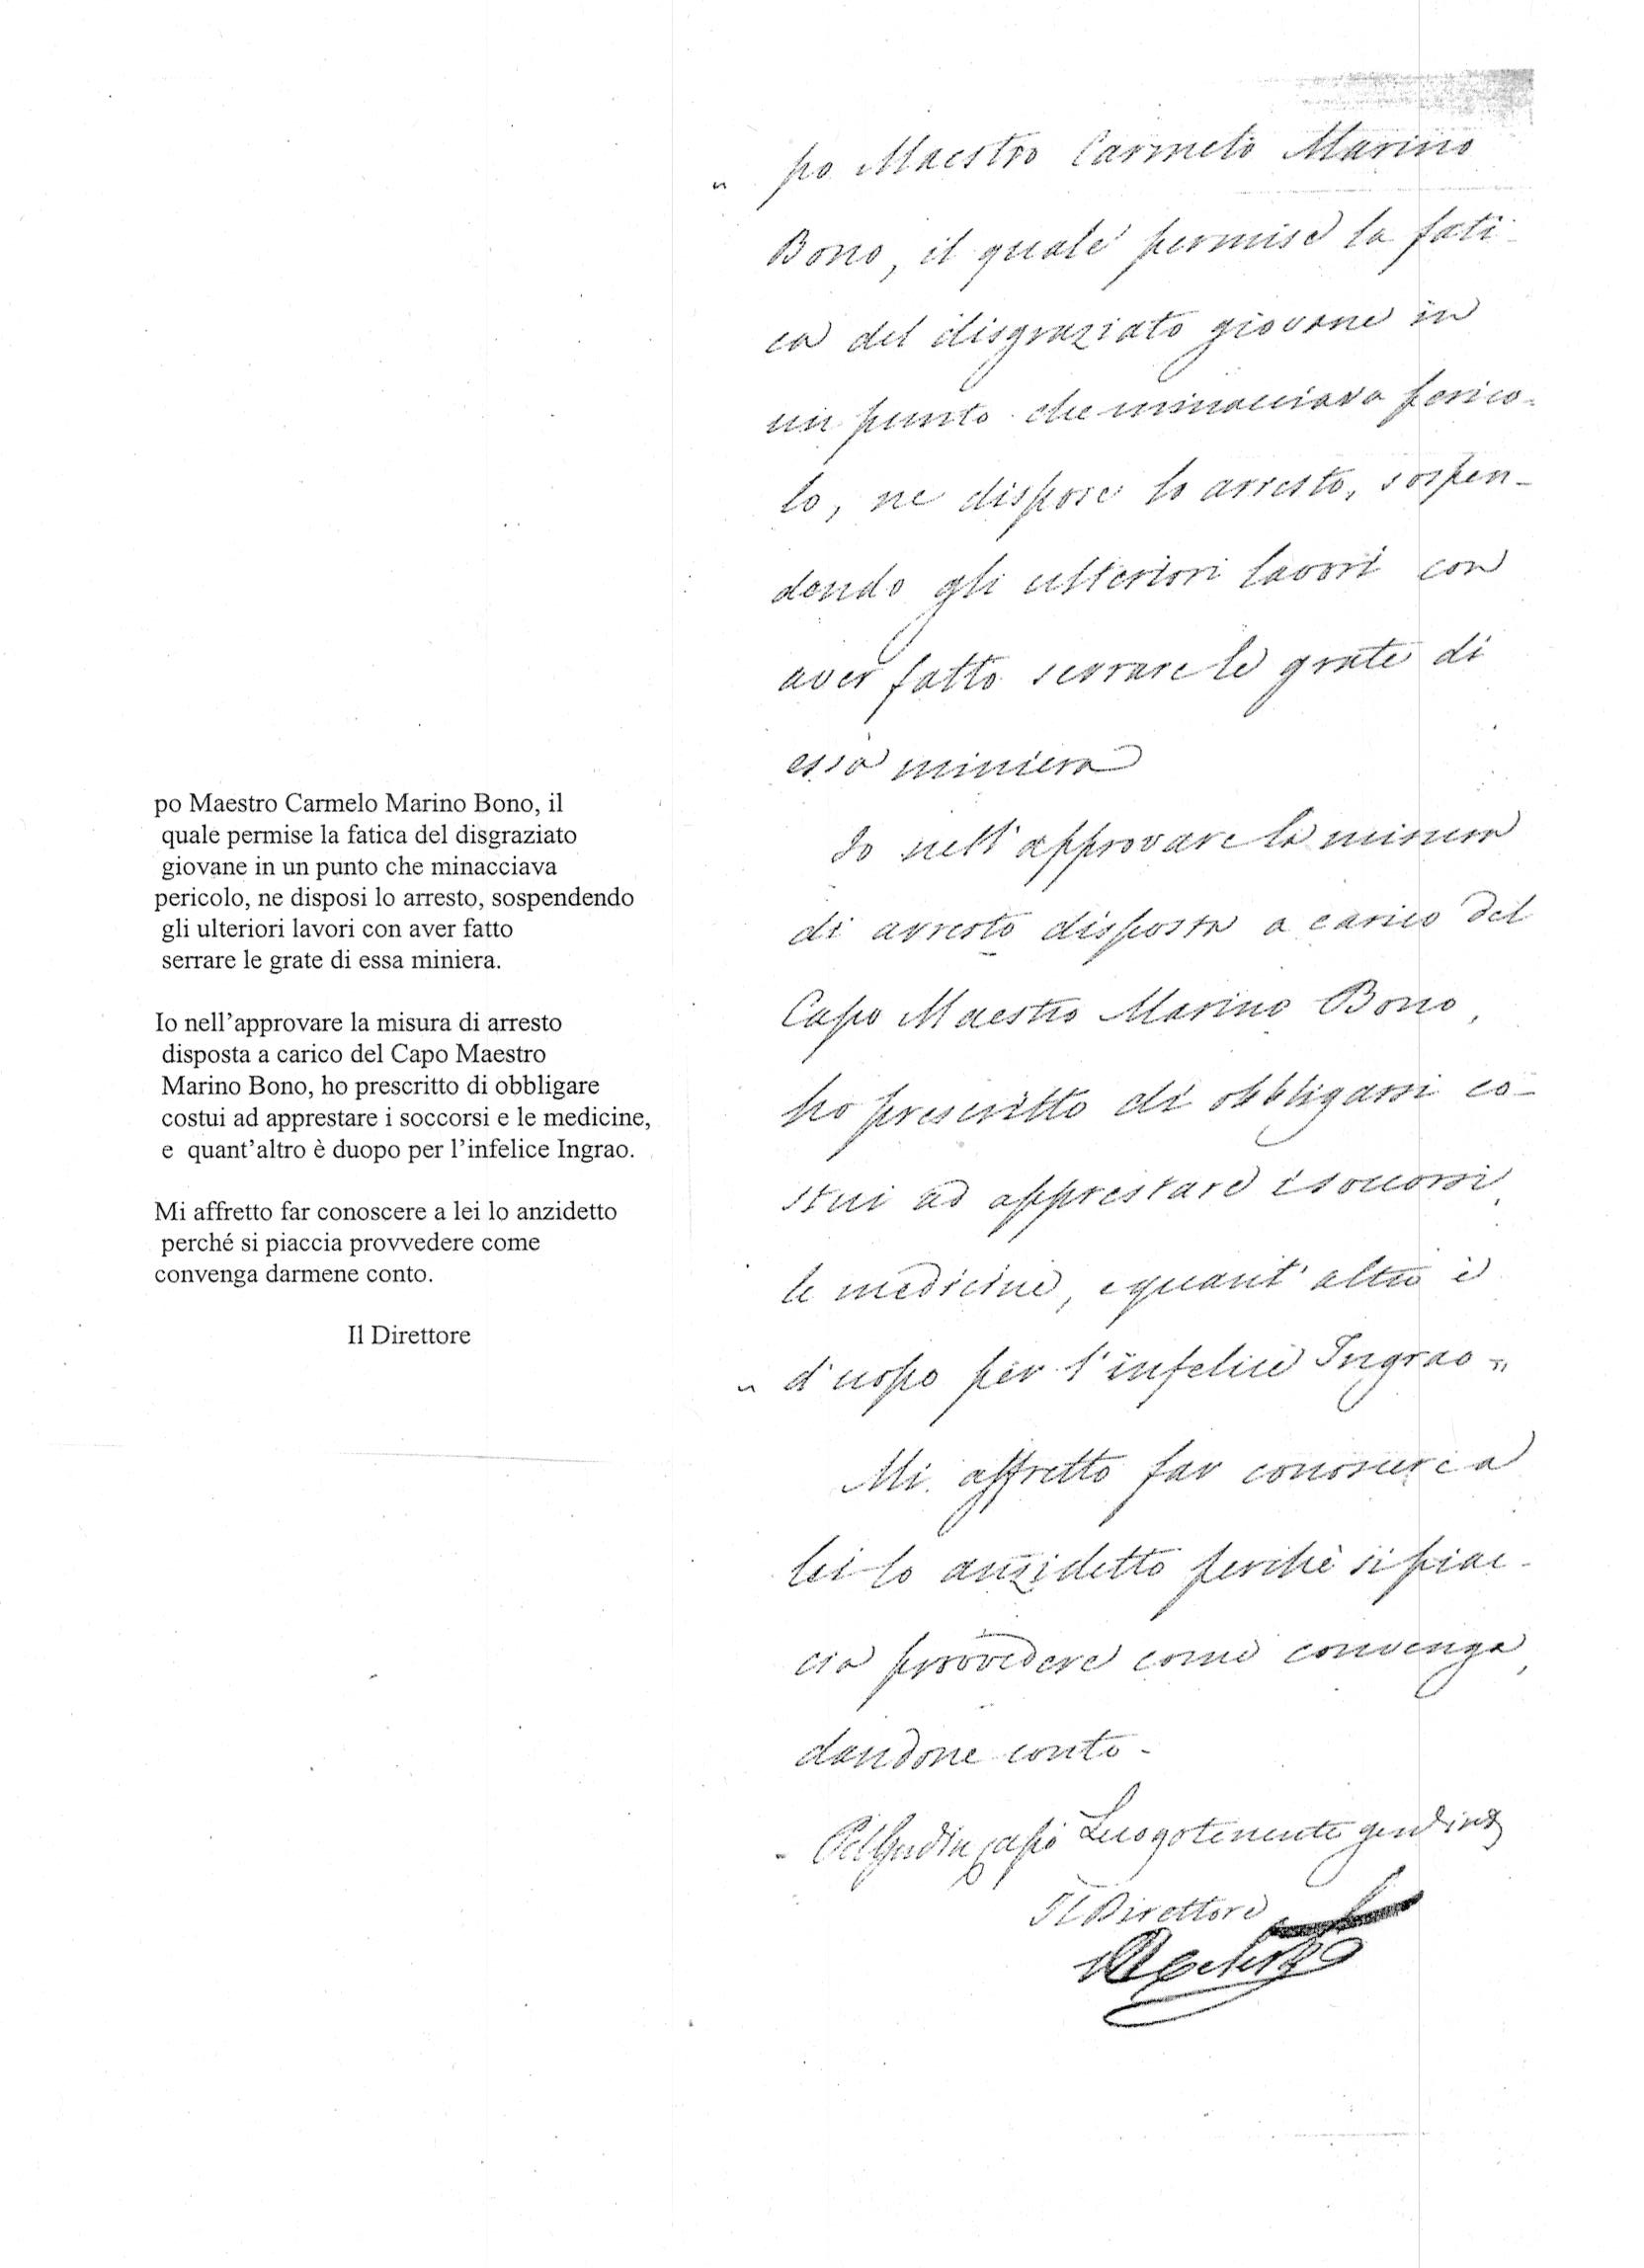 po Maestro Carmelo Marino Bono, il
quale permise la fatica del disgraziato
giovane in un punto che minacciava
pericolo, ne disposi lo arresto, sospendendo
gli ulteriori lavori con aver fatto
serrare le grate di essa miniera.
Io nell’approvare la misura di arresto
disposta a carico del Capo Maestro
Marino Bono, ho prescritto di obbligare
costui ad apprestare i soccorsi e le medicine,
e quant’altro è duopo per l’infelice Ingrao.
Mi affretto far conoscere a lei lo anzidetto
perché si piaccia provvedere come
convenga darmene conto.
Il Direttore
" po Maestro Carmelo Marino
Bono, il quale permise la fati-
ca del disgraziato giovane in
un punto che minacciava perico-
lo, ne dispose lo arresto, sospen-
dendo gli ulteriori lavori con
aver fatto serrare le grate di
essa miniera
Io nell'approvare la misura
di arresto disposta a carico del
Capo Maestro Marino Bono,
ho prescritto di obbligarsi co-
stui ad apprestare i soccorsi,
le medicine, e quant'altro è
" d'uopo per l'infelice Ingrao "
Mi affretto far conoscere a
lei lo anzidetto perchè si piac-
cia provvedere come convenga,
dandone conto -
Luogotenente
Il Direttore